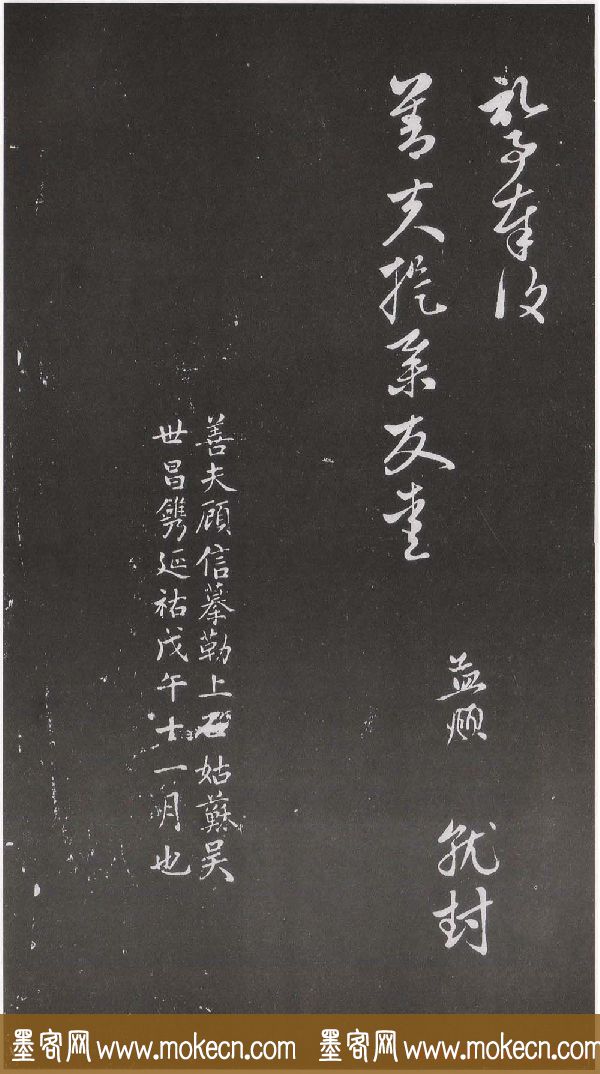 事奉復
善夫提舉友愛
孟頫 就封
善夫頋信摹勒上石姑蘇吴
世昌鐫延祐戊午十一月也
墨客网 www.mokecn.com 墨客网 www.mokecn.com